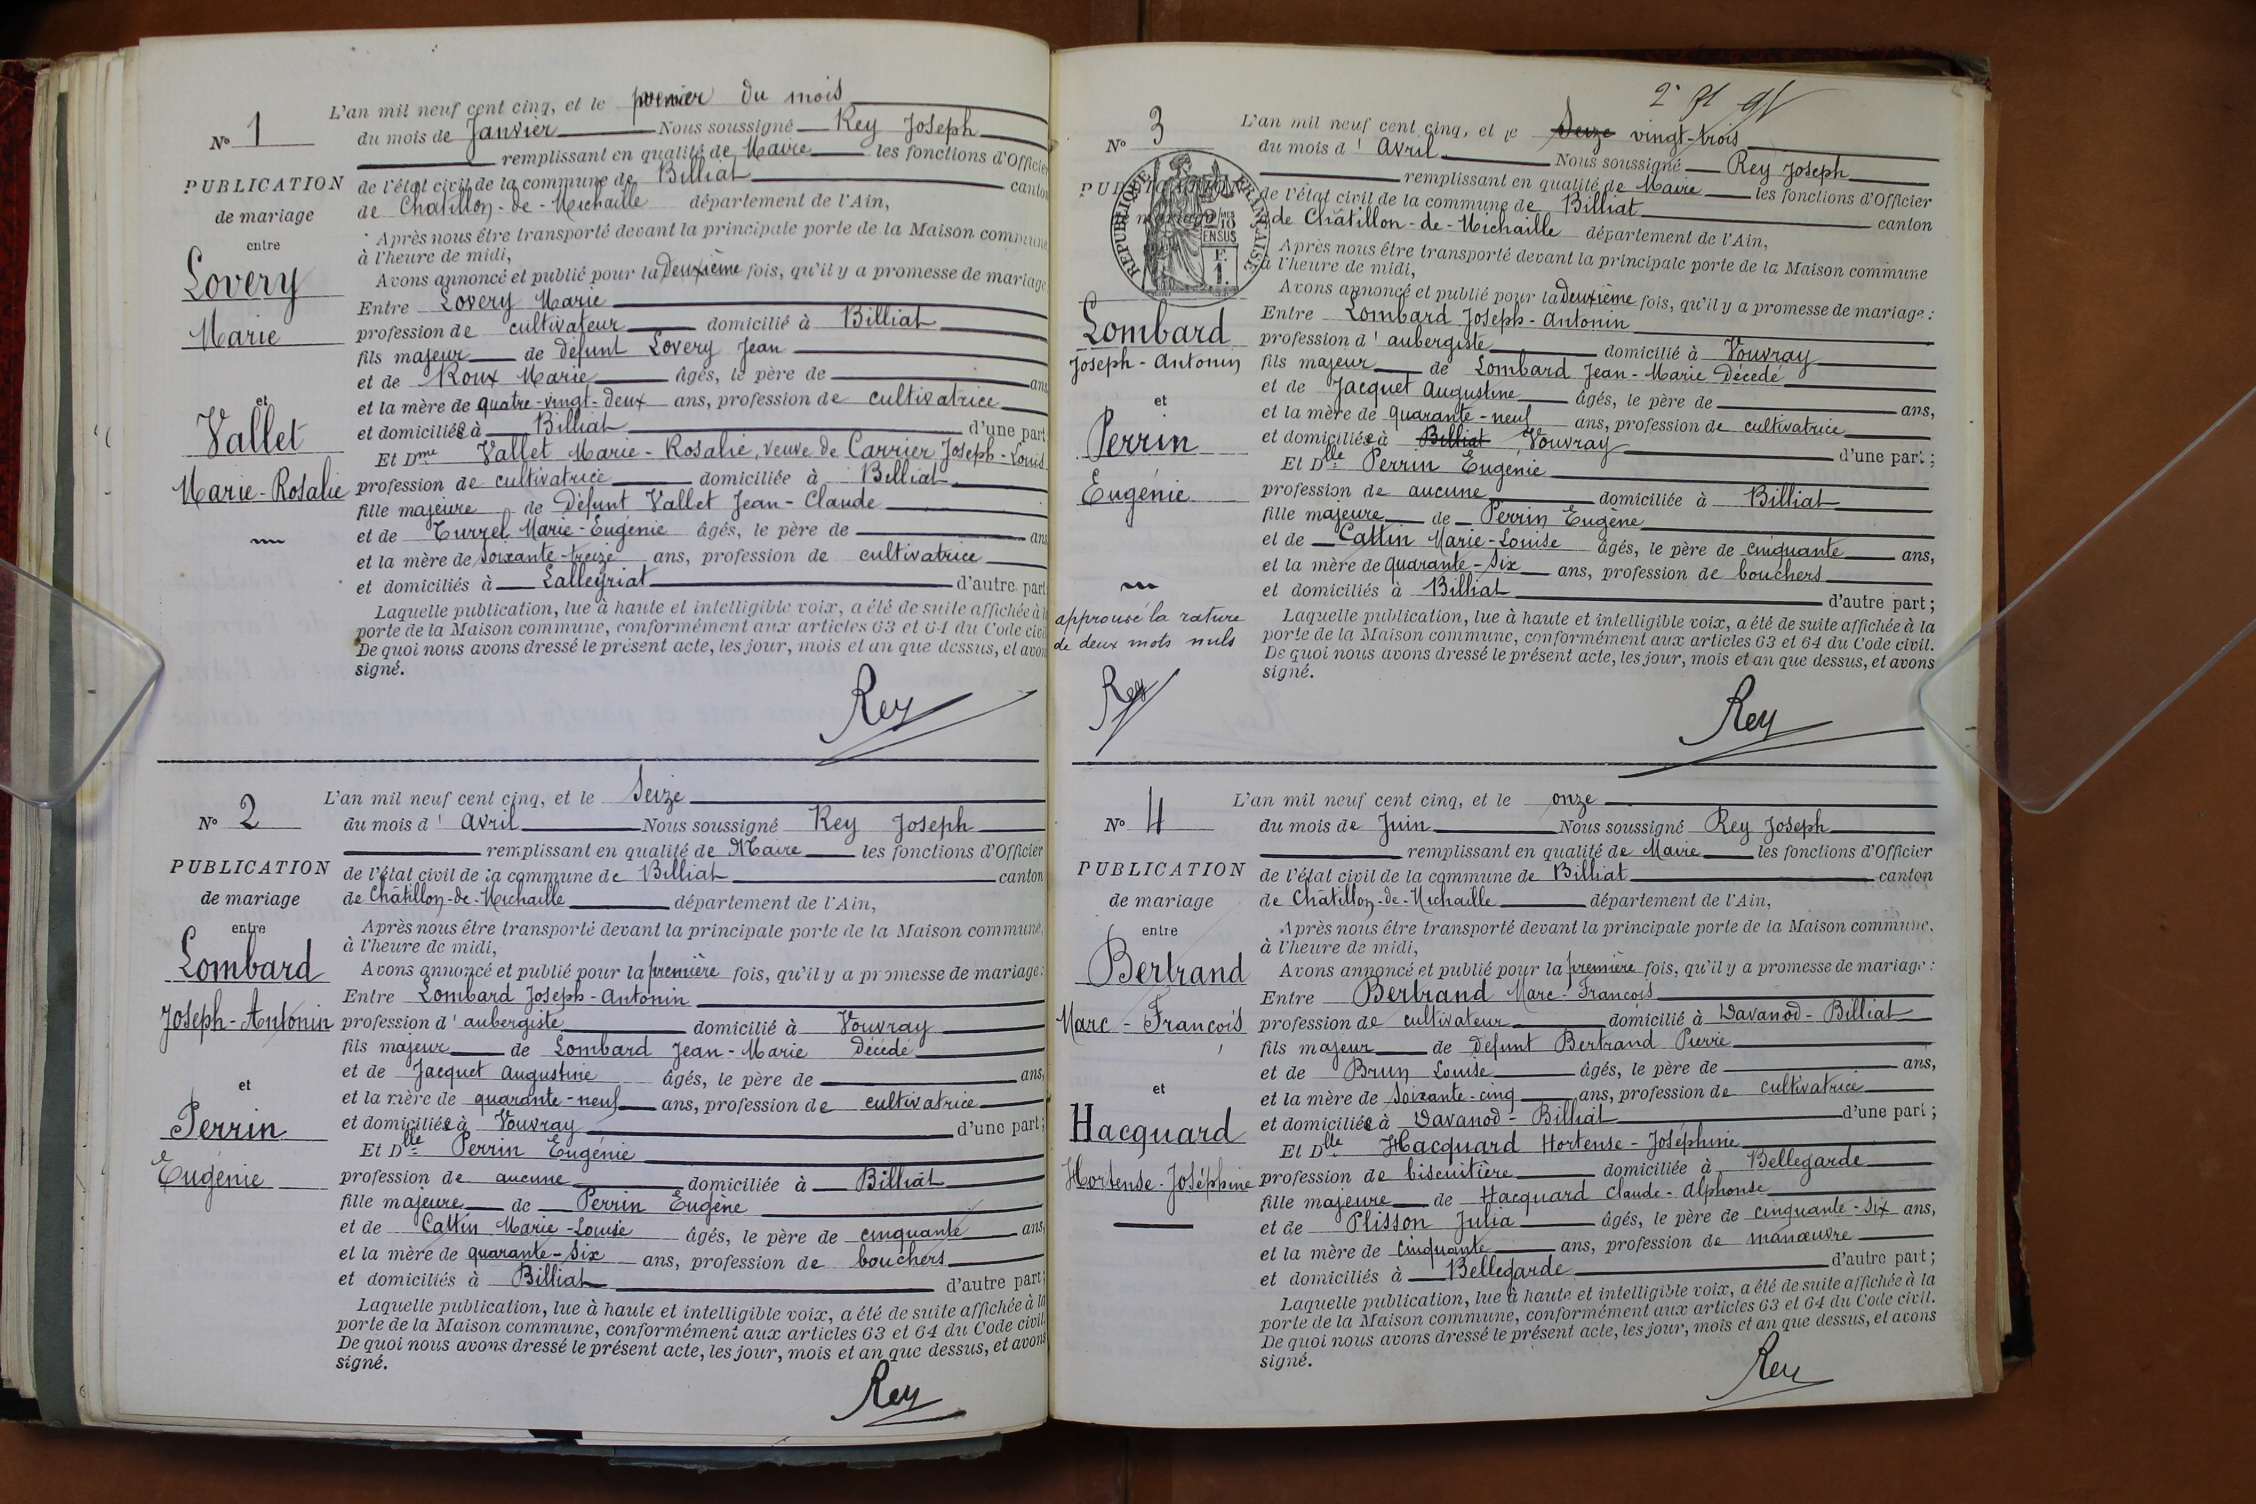 L'an mil neuf cent cinq, et le premier du mois
N° 1
du mois de Janvier Nous soussigné Rey Joseph
remplissant en qualité de Maire les fonctions d'Officier
PUBLICATION
de l'état civil de la commune de Billiat canton
de mariage
de Châtillon-de-Michaille département de l'Ain,
entre
Après nous être transporté devant la principale porte de la Maison commune
à l'heure de midi,
Lovery
Avons annoncé et publié pour la Deuxième fois, qu'il y a promesse de mariage
Entre Lovery Marie
Marie
profession de cultivateur domicilié à Billiat
fils majeur de défunt Lovery Jean
et de Roux Marie âgés, le père de ans
et
et la mère de quatre-vingt-deux ans, profession de cultivatrice
Vallet
et domiciliée à Billiat d'une part
Et Dme Vallet Marie-Rosalie, veuve de Carrier Joseph-Louis
Marie-Rosalie
profession de cultivatrice domiciliée à Billiat
fille majeure de Défunt Vallet Jean-Claude
et de Turrel Marie-Eugénie âgés, le père de ans
et la mère de soixante-treize ans, profession de cultivatrice
et domiciliés à Lalleyriat d'autre part
Laquelle publication, lue à haute et intelligible voix, a été de suite affichée à la
porte de la Maison commune, conformément aux articles 63 et 64 du Code civil
De quoi nous avons dressé le présent acte, les jour, mois et an que dessus, et avons
signé.
Rey
L'an mil neuf cent cinq, et le Seize
N° 2
du mois d'Avril Nous soussigné Rey Joseph
remplissant en qualité de Maire les fonctions d'Officier
PUBLICATION
de l'état civil de la commune de Billiat canton
de mariage
de Châtillon-de-Michaille département de l'Ain,
entre
Après nous être transporté devant la principale porte de la Maison commune,
à l'heure de midi,
Lombard
Avons annoncé et publié pour la première fois, qu'il y a promesse de mariage:
Entre Lombard Joseph-Antonin
Joseph-Antonin
profession d'aubergiste domicilié à Vouvray
fils majeur de Lombard Jean-Marie Décédé
et de Jacquet Augustine âgés, le père de ans,
et
et la mère de quarante-neuf ans, profession de cultivatrice
Perrin
et domiciliée à Vouvray d'une part;
Et Dlle Perrin Eugénie
Eugénie
profession de aucune domiciliée à Billiat
fille majeure de Perrin Eugène
et de Cattin Marie-Louise âgés, le père de cinquante ans,
et la mère de quarante-six ans, profession de bouchers
et domiciliés à Billiat d'autre part;
Laquelle publication, lue à haute et intelligible voix, a été de suite affichée à la
porte de la Maison commune, conformément aux articles 63 et 64 du Code civil.
De quoi nous avons dressé le présent acte, les jour, mois et an que dessus, et avons
signé.
Rey
L'an mil neuf cent cinq, et le Seize vingt-trois
N° 3
du mois d'Avril Nous soussigné Rey Joseph
remplissant en qualité de Maire les fonctions d'Officier
PUBLICATION
de l'état civil de la commune de Billiat canton
mariage
RÉPUBLIQUE FRANÇAISE
2/10MES
EN SUS
F.
1.
de Châtillon-de-Michaille département de l'Ain,
Après nous être transporté devant la principale porte de la Maison commune
à l'heure de midi,
Avons annoncé et publié pour la Deuxième fois, qu'il y a promesse de mariage:
Lombard
Entre Lombard Joseph-Antonin
profession d'aubergiste domicilié à Vouvray
Joseph-Antonin
fils majeur de Lombard Jean-Marie Décédé
et de Jacquet Augustine âgés, le père de ans,
et
et la mère de quarante-neuf ans, profession de cultivatrice
Perrin
et domiciliée à Billiat Vouvray d'une part;
Et Dlle Perrin Eugénie
Eugénie
profession de aucune domiciliée à Billiat
fille majeure de Perrin Eugène
et de Cattin Marie-Louise âgés, le père de cinquante ans,
et la mère de quarante-six ans, profession de bouchers
et domiciliés à Billiat d'autre part;
approuvé la rature
de deux mots nuls
Rey
Laquelle publication, lue à haute et intelligible voix, a été de suite affichée à la
porte de la Maison commune, conformément aux articles 63 et 64 du Code civil.
De quoi nous avons dressé le présent acte, les jour, mois et an que dessus, et avons
signé.
Rey
L'an mil neuf cent cinq, et le onze
N° 4
du mois de Juin Nous soussigné Rey Joseph
remplissant en qualité de Maire les fonctions d'Officier
PUBLICATION
de l'état civil de la commune de Billiat canton
de mariage
de Châtillon-de-Michaille département de l'Ain,
entre
Après nous être transporté devant la principale porte de la Maison commune,
à l'heure de midi,
Bertrand
Avons annoncé et publié pour la première fois, qu'il y a promesse de mariage:
Entre Bertrand Marc-François
Marc-François
profession de cultivateur domicilié à Davanod-Billiat
fils majeur de défunt Bertrand Pierre
et de Brun Louise âgés, le père de ans,
et
et la mère de soixante-cinq ans, profession de cultivatrice
Hacquard
et domiciliée à Davanod-Billiat d'une part;
Et Dlle Hacquard Hortense-Joséphine
Hortense-Joséphine
profession de biscuitière domiciliée à Bellegarde
fille majeure de Hacquard Claude-Alphonse
et de Plisson Julia âgés, le père de cinquante-six ans,
et la mère de cinquante ans, profession de manœuvre
et domiciliés à Bellegarde d'autre part;
Laquelle publication, lue à haute et intelligible voix, a été de suite affichée à la
porte de la Maison commune, conformément aux articles 63 et 64 du Code civil.
De quoi nous avons dressé le présent acte, les jour, mois et an que dessus, et avons
signé.
Rey